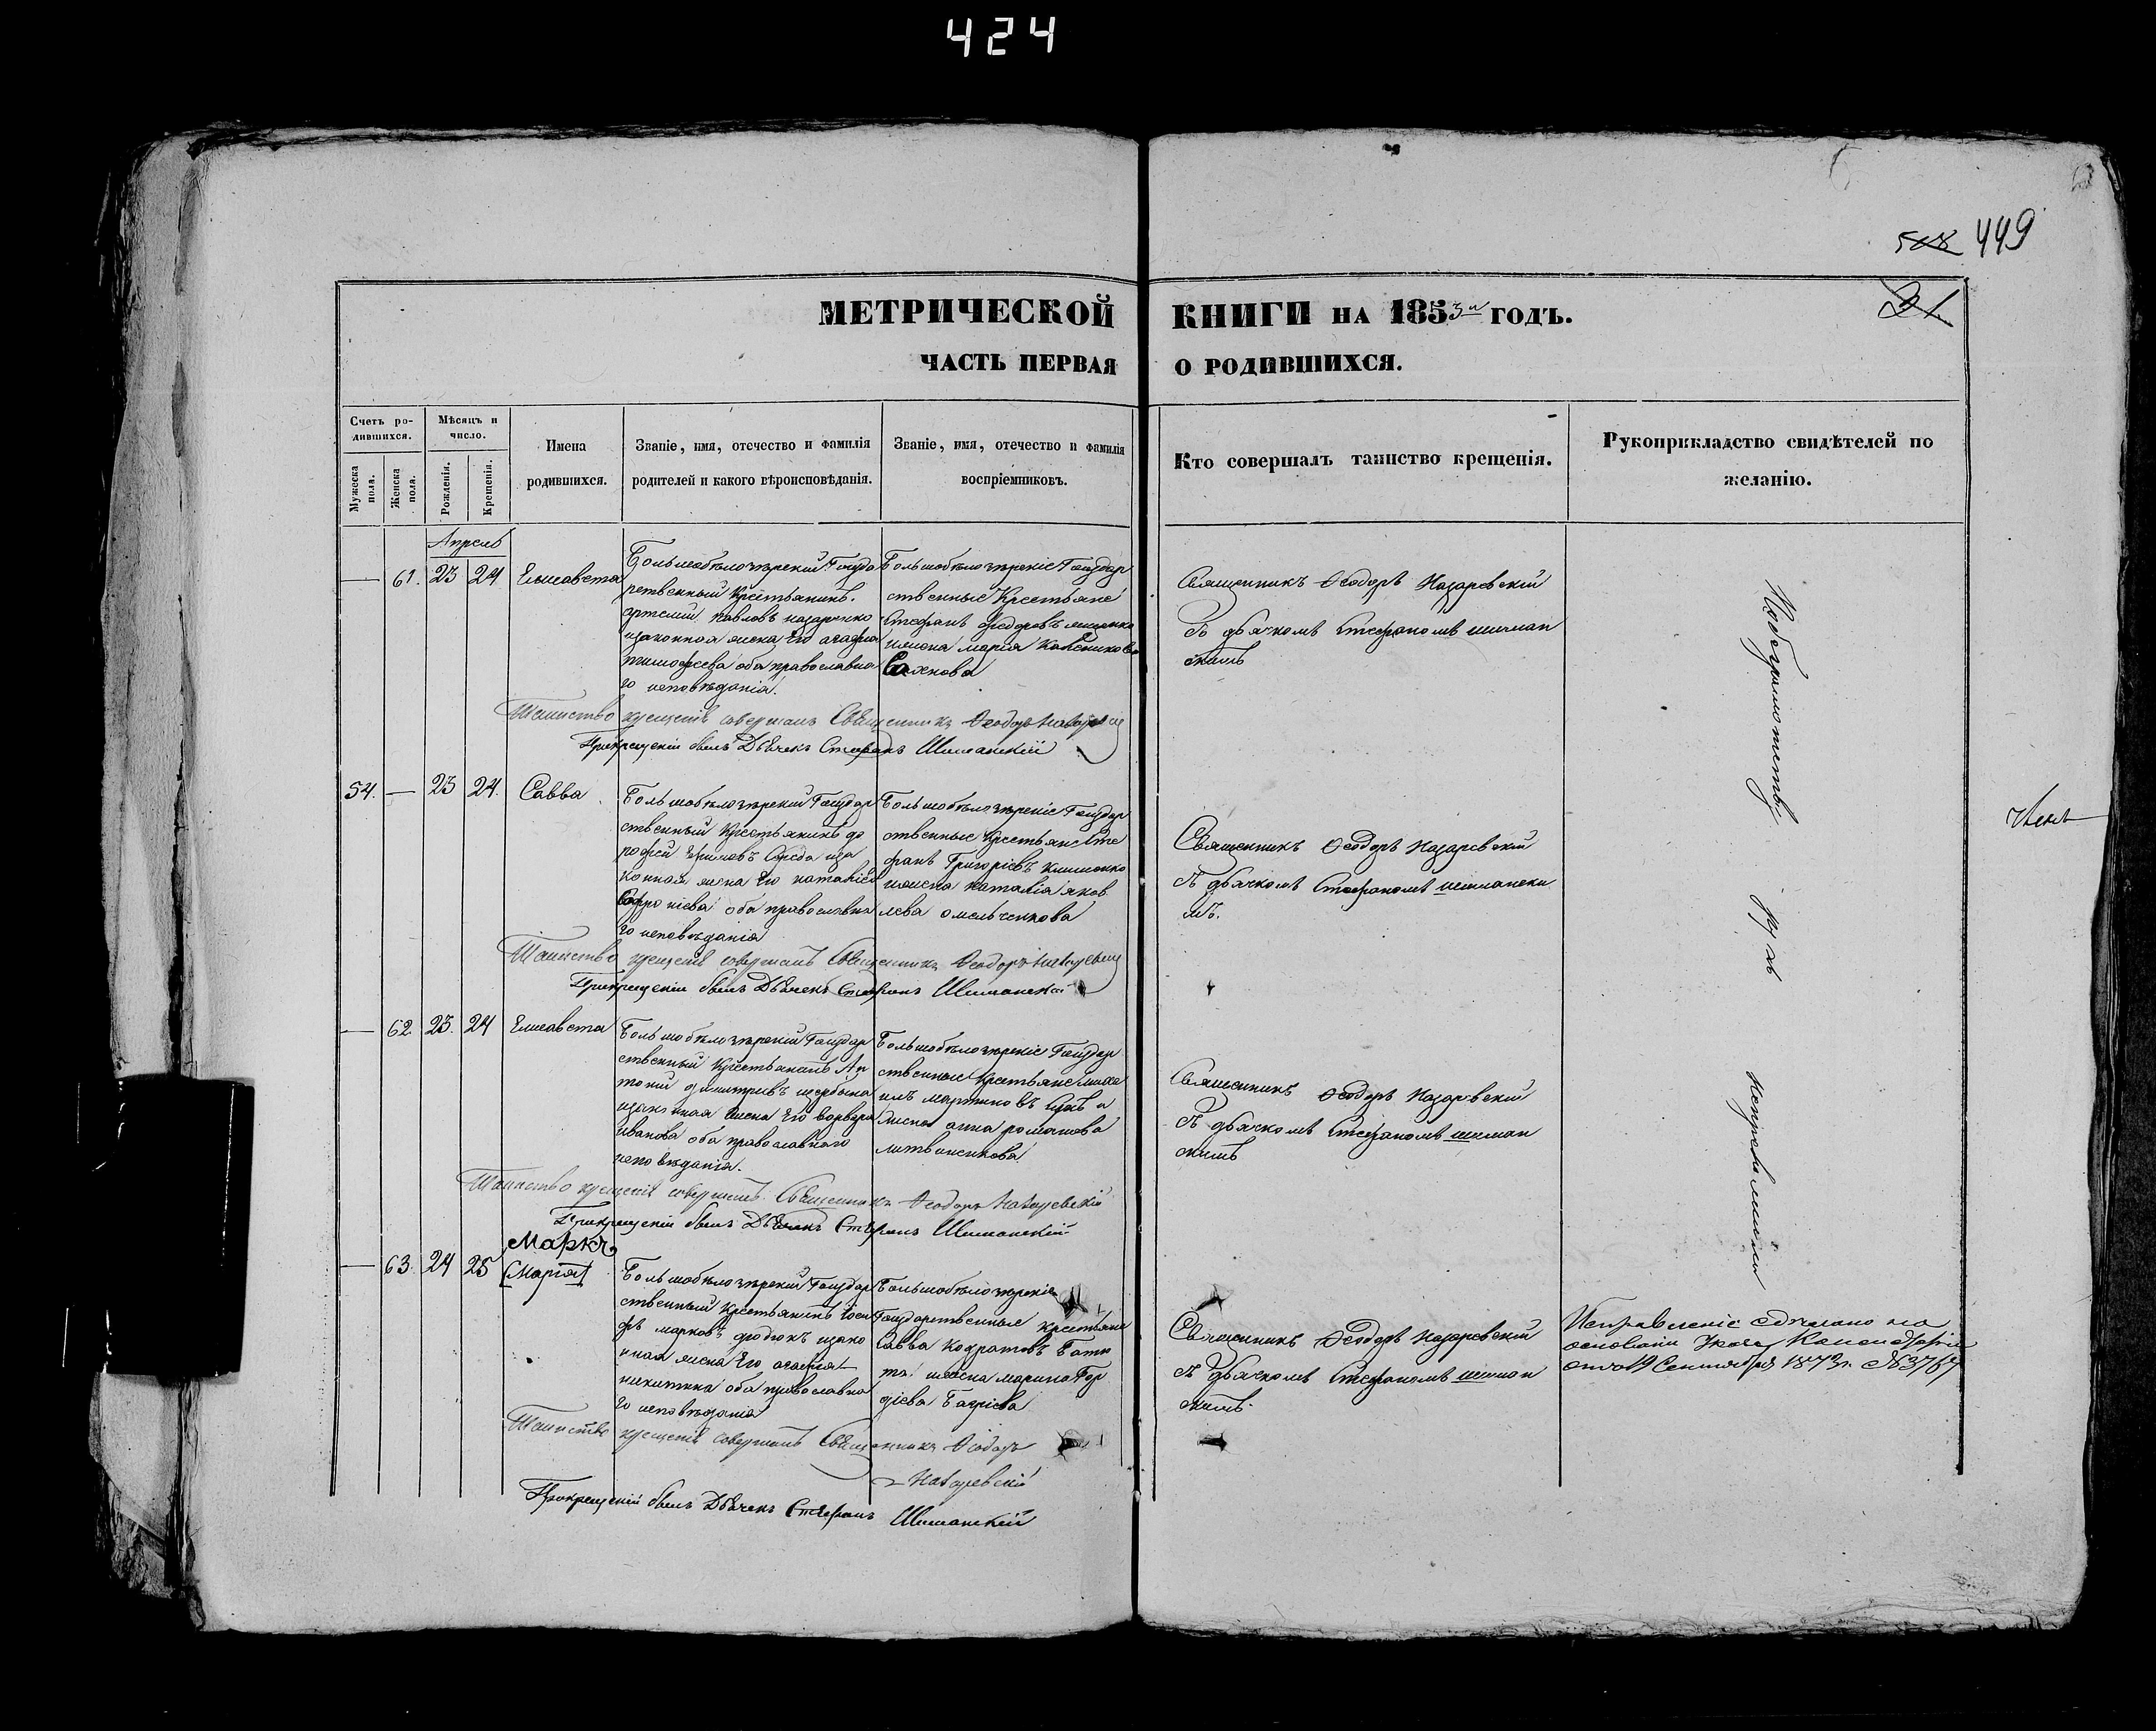 424
508 449
21
МЕТРИЧЕСКОЙ КНИГИ НА 1853й ГОДЪ.
ЧАСТЬ ПЕРВАЯ О РОДИВШИХСЯ.
Счетъ ро-
дившихся.
Мужеска пола.
Женска пола.
Мѣсяцъ и
число.
Рожденія.
Крещенія.
Имена
родившихся.
Званіе, имя, отечество и фамилія
родителей и какого вѣроисповѣданія.
Званіе, имя, отечество и фамилія
воспріемниковъ.
Кто совершалъ таинство крещенія.
Рукоприкладство свидѣтелей по
желанію.
Апрель
— 61. 23 24 Елисавета
Большобѣлозѣрскій Госуда
рственный Крестьянинъ
артемій павловъ назаренко
изаконная жена Его агафиа
тимофеева оба православна
го исповѣданія.
Большобѣлозѣрскіе Государ
ственные Крестьяне
Стефанъ феодоровъ
ижена марія
Сахнова
Священникъ Ѳеодоръ Назаревскій
Съ дьячкомъ Стефаномъ шиман
скимъ
Таинство крещенія совершалъ Священникъ Ѳеодоръ Назаревскій
Прикрещеніи былъ Дьячекъ Стефанъ Шиманскій
54. — 23 24. Савва
Большобѣлозѣрскій Государ
ственный Крестьянинъ до
рофей Середа иза
конная жена Его наталиіа
Софроніева оба православна
го исповѣданія
Большобѣлозѣрскіе Государ
ственные Крестьяне Сте
фанъ Григоріевъ Клименко
ижена наталіа яков
лева омельченкова
Священникъ Ѳеодоръ Назаревскій
Съ дьячкомъ Стефаномъ шимански
мъ.
Таинство крещенія совершалъ Священникъ Ѳеодоръ Назаревскій
Прикрещеніи былъ Дьячекъ Стефанъ Шиманскій
— 62. 23. 24 Елисавета
Большобѣлозѣрскій Государ
ственный Крестьянинъ Ан
тоній димитріевъ щербина
изаконная жена Его варвара
иванова оба православнаго
исповѣданія.
Большобѣлозѣрскіе Государ
ственные Крестьяне миха
илъ мартиновъ и
жена анна романова
литвиненкова
Священникъ Ѳеодоръ Назаревскій
Съ дьячкомъ Стефаномъ шиман
скимъ
Таинство крещенія совершалъ Священникъ Ѳеодоръ Назаревскій
Прикрещеніи былъ Дьячекъ Стефанъ Шиманскій
Маркъ
— 63. 24 25 [Марія]
Большобѣлозѣрскій Государ
ственный Крестьянинъ іоси
фъ марковъ дюдюкъ изако
нная жена Его агафія
никитина оба православна
го исповѣданія
Большобѣлозѣрскіе
Государственные Крестьяне
Савва Кодратовъ
ижена марина Гор
діева Багріева
Священникъ Ѳеодоръ Назаревскій
Съ дьячкомъ Стефаномъ шиман
скимъ.
Исправленіе сдѣлано на
основаніи Указа Консисторіи
отъ 19 Сентября 1873 г. №3767
Таинство крещенія совершалъ Священникъ Ѳеодоръ
Назаревскій
Прикрещеніи былъ Дьячекъ Стефанъ Шиманскій
Побезграмотству рукъ неприложили